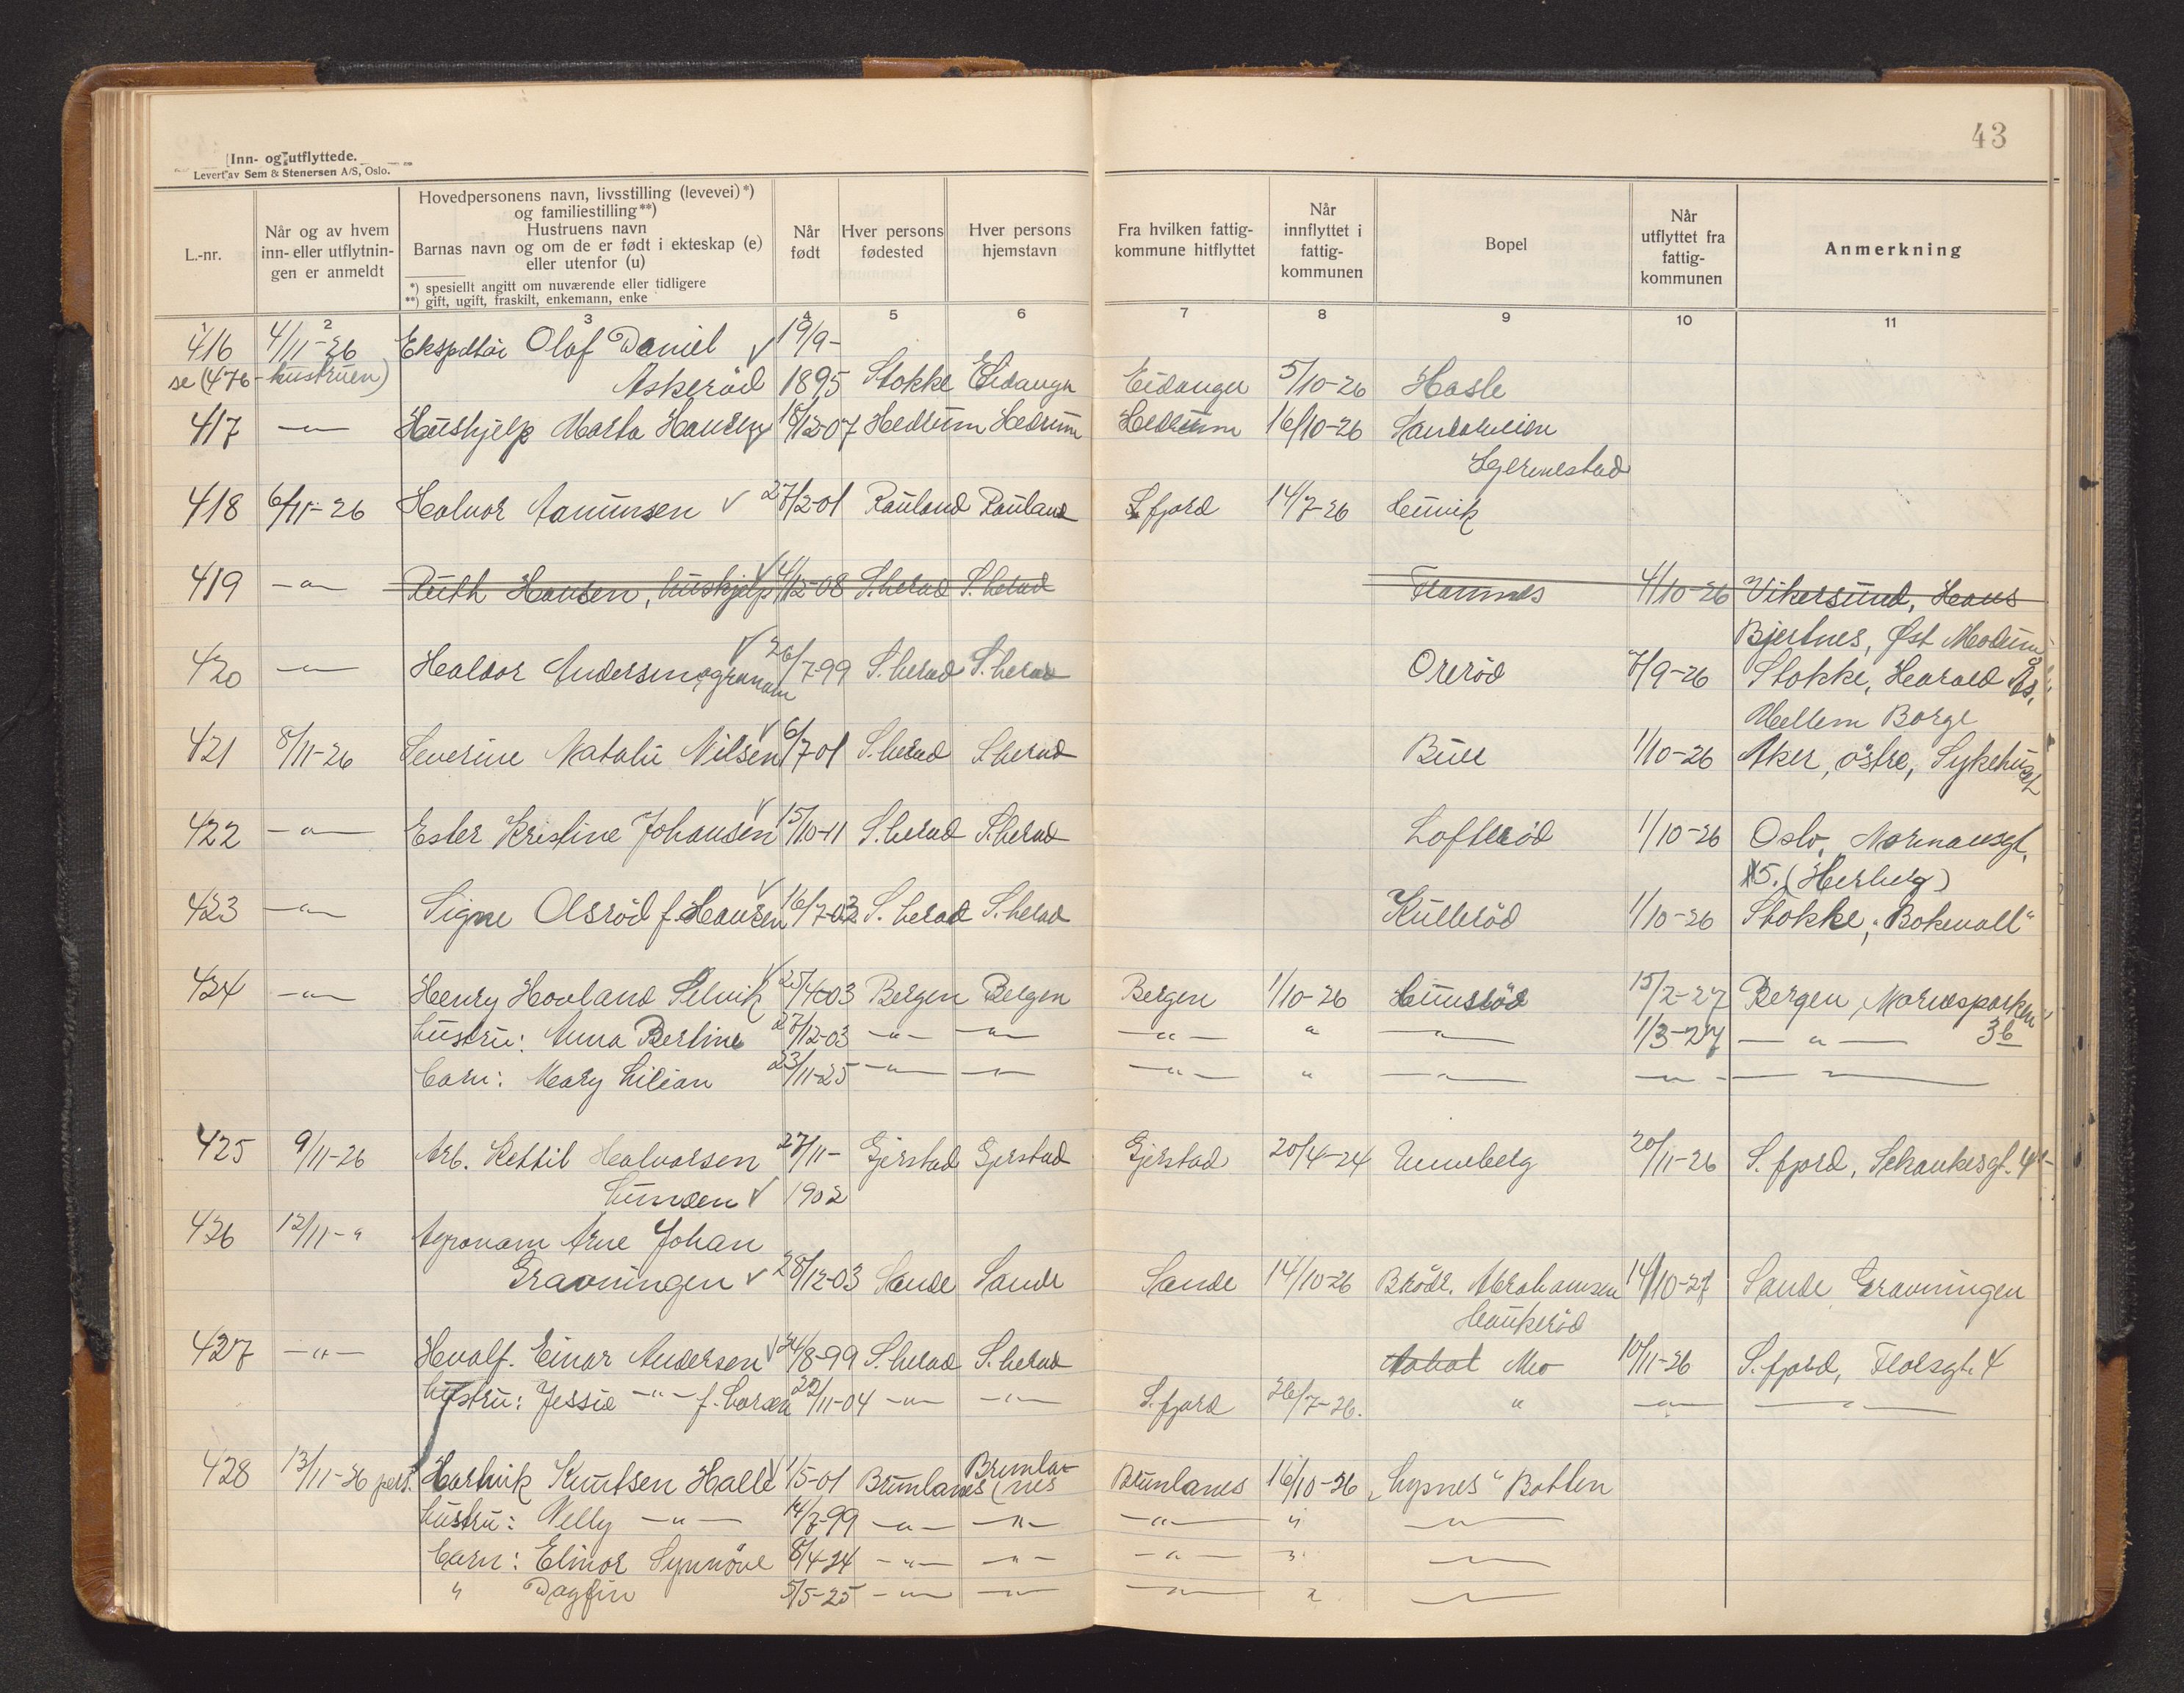 43
Inn- og utflyttede.
Levert av Sem & Stenersen A/S, Oslo.
L.-nr.
Når og av hvem inn- eller utflytnin-gen er anmeldt
Hovedpersonens navn, livsstilling (levevei)*)
og familiestilling**)
Hustruens navn
Barnas navn og om de er født i ekteskap (e)
eller utenfor (u)
*) spesiellt angitt om nuværende eller tidligere
**) gift, ugift, fraskilt, enkemann, enke
Når født
Hver persons fødested
Hver persons hjemstavn
Fra hvilken fattig-kommune hitflyttet
Når innflyttet i fattig-kommunen
Bopel
Når utflyttet fra fattig-kommunen
Anmerkning
1 2 3 4 5 6 7 8 9 10 11
416 4/11-26 Ekspditør Olaf Daniel √ 19/9-
se (476 - hustruen) Askerød 1895 Stokke Eidanger Eidanger 5/10-26 Hasle
417 -"- Hushjelp Marta Hansen 18/12-07 Hedrum Hedrum Hedrum 16/10-26
418 6/11-26 Halvor Aamunsen √ 27/2-01 Rauland Rauland S.fjord 14/7-26
419 -"- Ruth Hansen, hushjelp √ 4/12-08 S.herad S.herad Framnes 4/10-26 Vikersund, Hans
Bjertnes, Øst Modum
420 -"- Haldor Andersen, agronom √ 26/7-99 S.herad S.herad Orerød 7/9-26 Stokke, Harald Ås,
Mellem Borge
421 8/11-26 Severine Natalie Nilsen √ 6/7-01 S.herad S.herad Buer 1/10-26 Aker, østre, Sykehuset
422 -"- Ester Kristine Johansen √ 15/10-11 S.herad S.herad Lofterød 1/10-26 Oslo, Normansgt.
15. (Herberg)
423 -"- Signe Olsrød f. Hansen √ 16/7-03 S.herad S.herad Kullerød 1/10-26 Stokke, "Bokevall"
424 -"- Henry Hovland Selvik √ 25/4-03 Bergen Bergen Bergen 1/10-26 Hunsrød 15/2-27 Bergen, Mariesparken
hustru: Anna Bertine 27/12-03 -"- -"- -"- " -"- 1/3-27 -"- 3b
barn: Mary Lilian 23/11-25 -"- -"- -"- " -"- -"- -"-
425 9/11-26 Arb. Kettil Halvorsen 27/11- Gjerstad Gjerstad Gjerstad 20/4-24 Unneberg 20/11-26 S.fjord, Schankesgt. 4
Lunden √ 1902
426 12/11-" Agronom Arne Johan
Gravningen √ 28/12-03 Sande Sande Sande 14/10-26 Brødr. Abrahamsen 14/10-27 Sande Gravningen
Haukerød
427 -"- Hvalf. Einar Andersen √ 24/8-99 S.herad S.herad Mo 10/11-26 S.fjord, Florsgt. 4
hustru: Jessie -"- f. Larsen 22/11-04 -"- -"- S.fjord 26/7-26. " -"- -"-
428 13/11-26 pers. Hartvik Knutsen Halle √ 1/5-01 Brunlanes Brunla-nes Brunlanes 16/10-26 "Lypnes" Botten
hustru: Nelly -"- 14/7-99 -"- -"- -"- " -"-
barn: Elinor Synnøve 8/4-24 -"- -"- -"- " -"-
" Dagfin 5/5-25 -"- -"- -"- " -"-